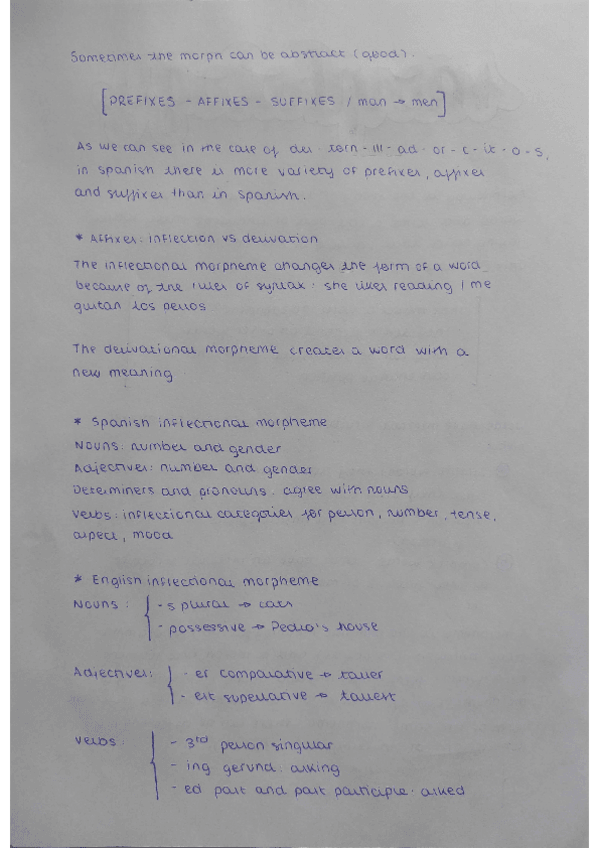 Sometimes the morph can be abstract (good).
[PREFIXES - AFFIXES - SUFFIXES / man → men]
As we can see in the case of des - tern - ill - ad - or - c - it - o - s,
in spanish there is more variety of prefixes, affixes
and suffixes than in spanish.
* Affixes: inflection vs derivation
The inflectional morpheme changes the form of a word
because of the rules of syntax: she likes reading / me
gustan los perros
The derivational morpheme creates a word with a
new meaning
* Spanish inflectional morpheme
Nouns: number and gender
Adjectives: number and gender
Determiners and pronouns: agree with nouns
Verbs: inflectional categories for person, number, tense,
aspect, mood
* English inflectional morpheme
Nouns: - s plural → cats
- possessive → Pedro's house
Adjectives: - er comparative → taller
- est superlative → tallest
Verbs: - 3rd person singular
- ing gerund: asking
- ed past and past participle: asked